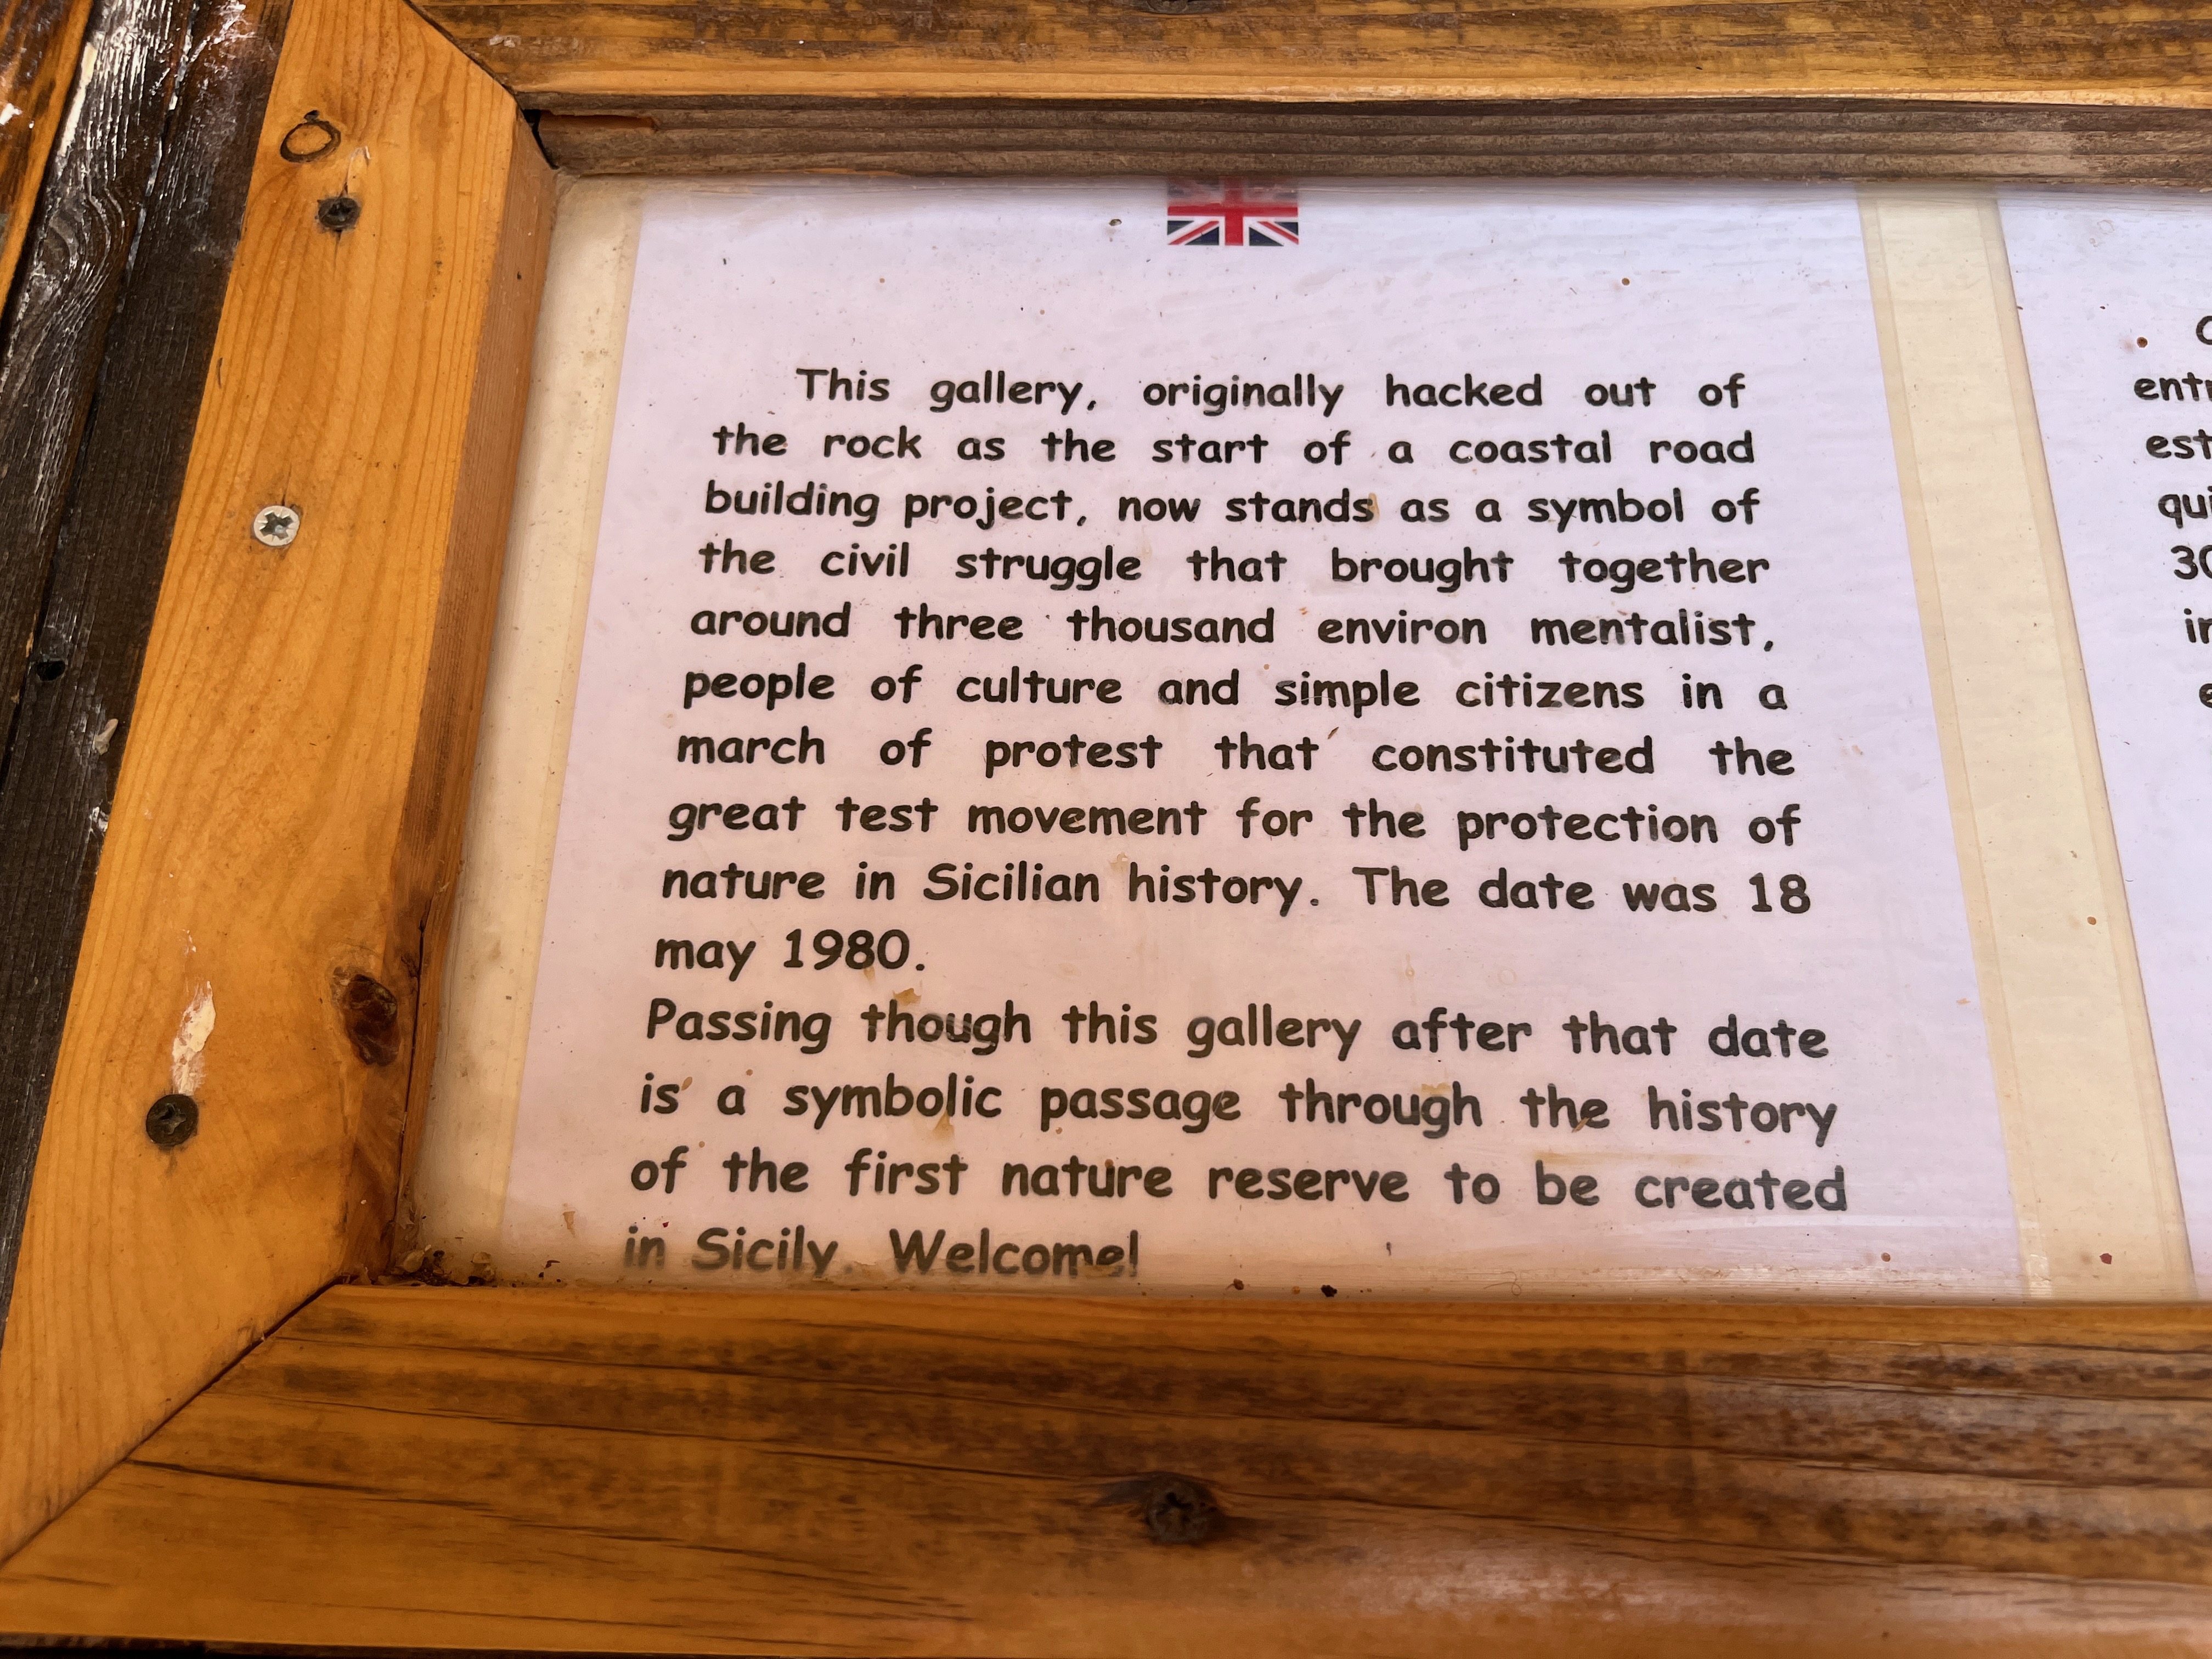 This gallery, originally hacked out of
the rock as the start of a coastal road
building project, now stands as a symbol of
the civil struggle that brought together
around three thousand environ mentalist,
people of culture and simple citizens in a
march of protest that constituted the
great test movement for the protection of
nature in Sicilian history. The date was 18
may 1980.
Passing though this gallery after that date
is a symbolic passage through the history
of the first nature reserve to be created
in Sicily. Welcome!